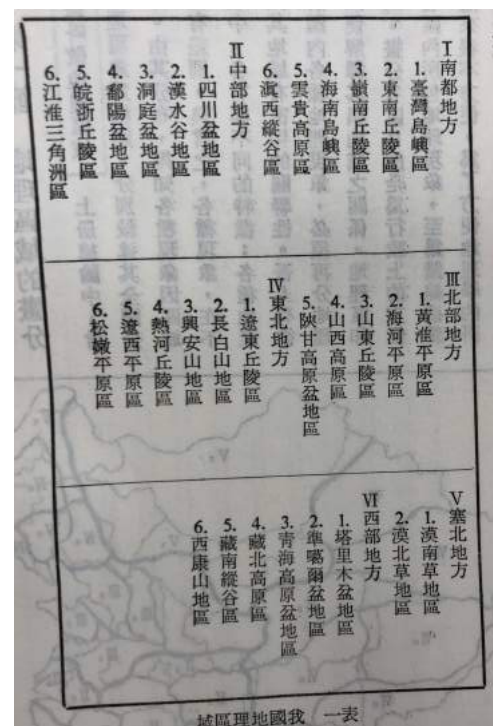 I 南部地方
1.臺灣島嶼區
2.東南丘陵區
3.嶺南丘陵區
4.海南島嶼區
5.雲貴高原區
6.滇西縱谷區
II 中部地方
1.四川盆地區
2.漢水谷地區
3.洞庭盆地區
4.鄱陽盆地區
5.皖浙丘陵區
6.江淮三角洲區
III 北部地方
1.黃淮平原區
2.海河平原區
3.山東丘陵區
4.山西高原區
5.陝甘高原盆地區
IV 東北地方
1.遼東丘陵區
2.長白山地區
3.興安山地區
4.熱河丘陵區
5.遼西平原區
6.松嫩平原區
V 塞北地方
1.漠南草地區
2.漠北草地區
VI 西部地方
1.塔里木盆地區
2.準噶爾盆地區
3.青海高原盆地區
4.藏北高原區
5.藏南縱谷區
6.西康山地區
域區理地國我 一表